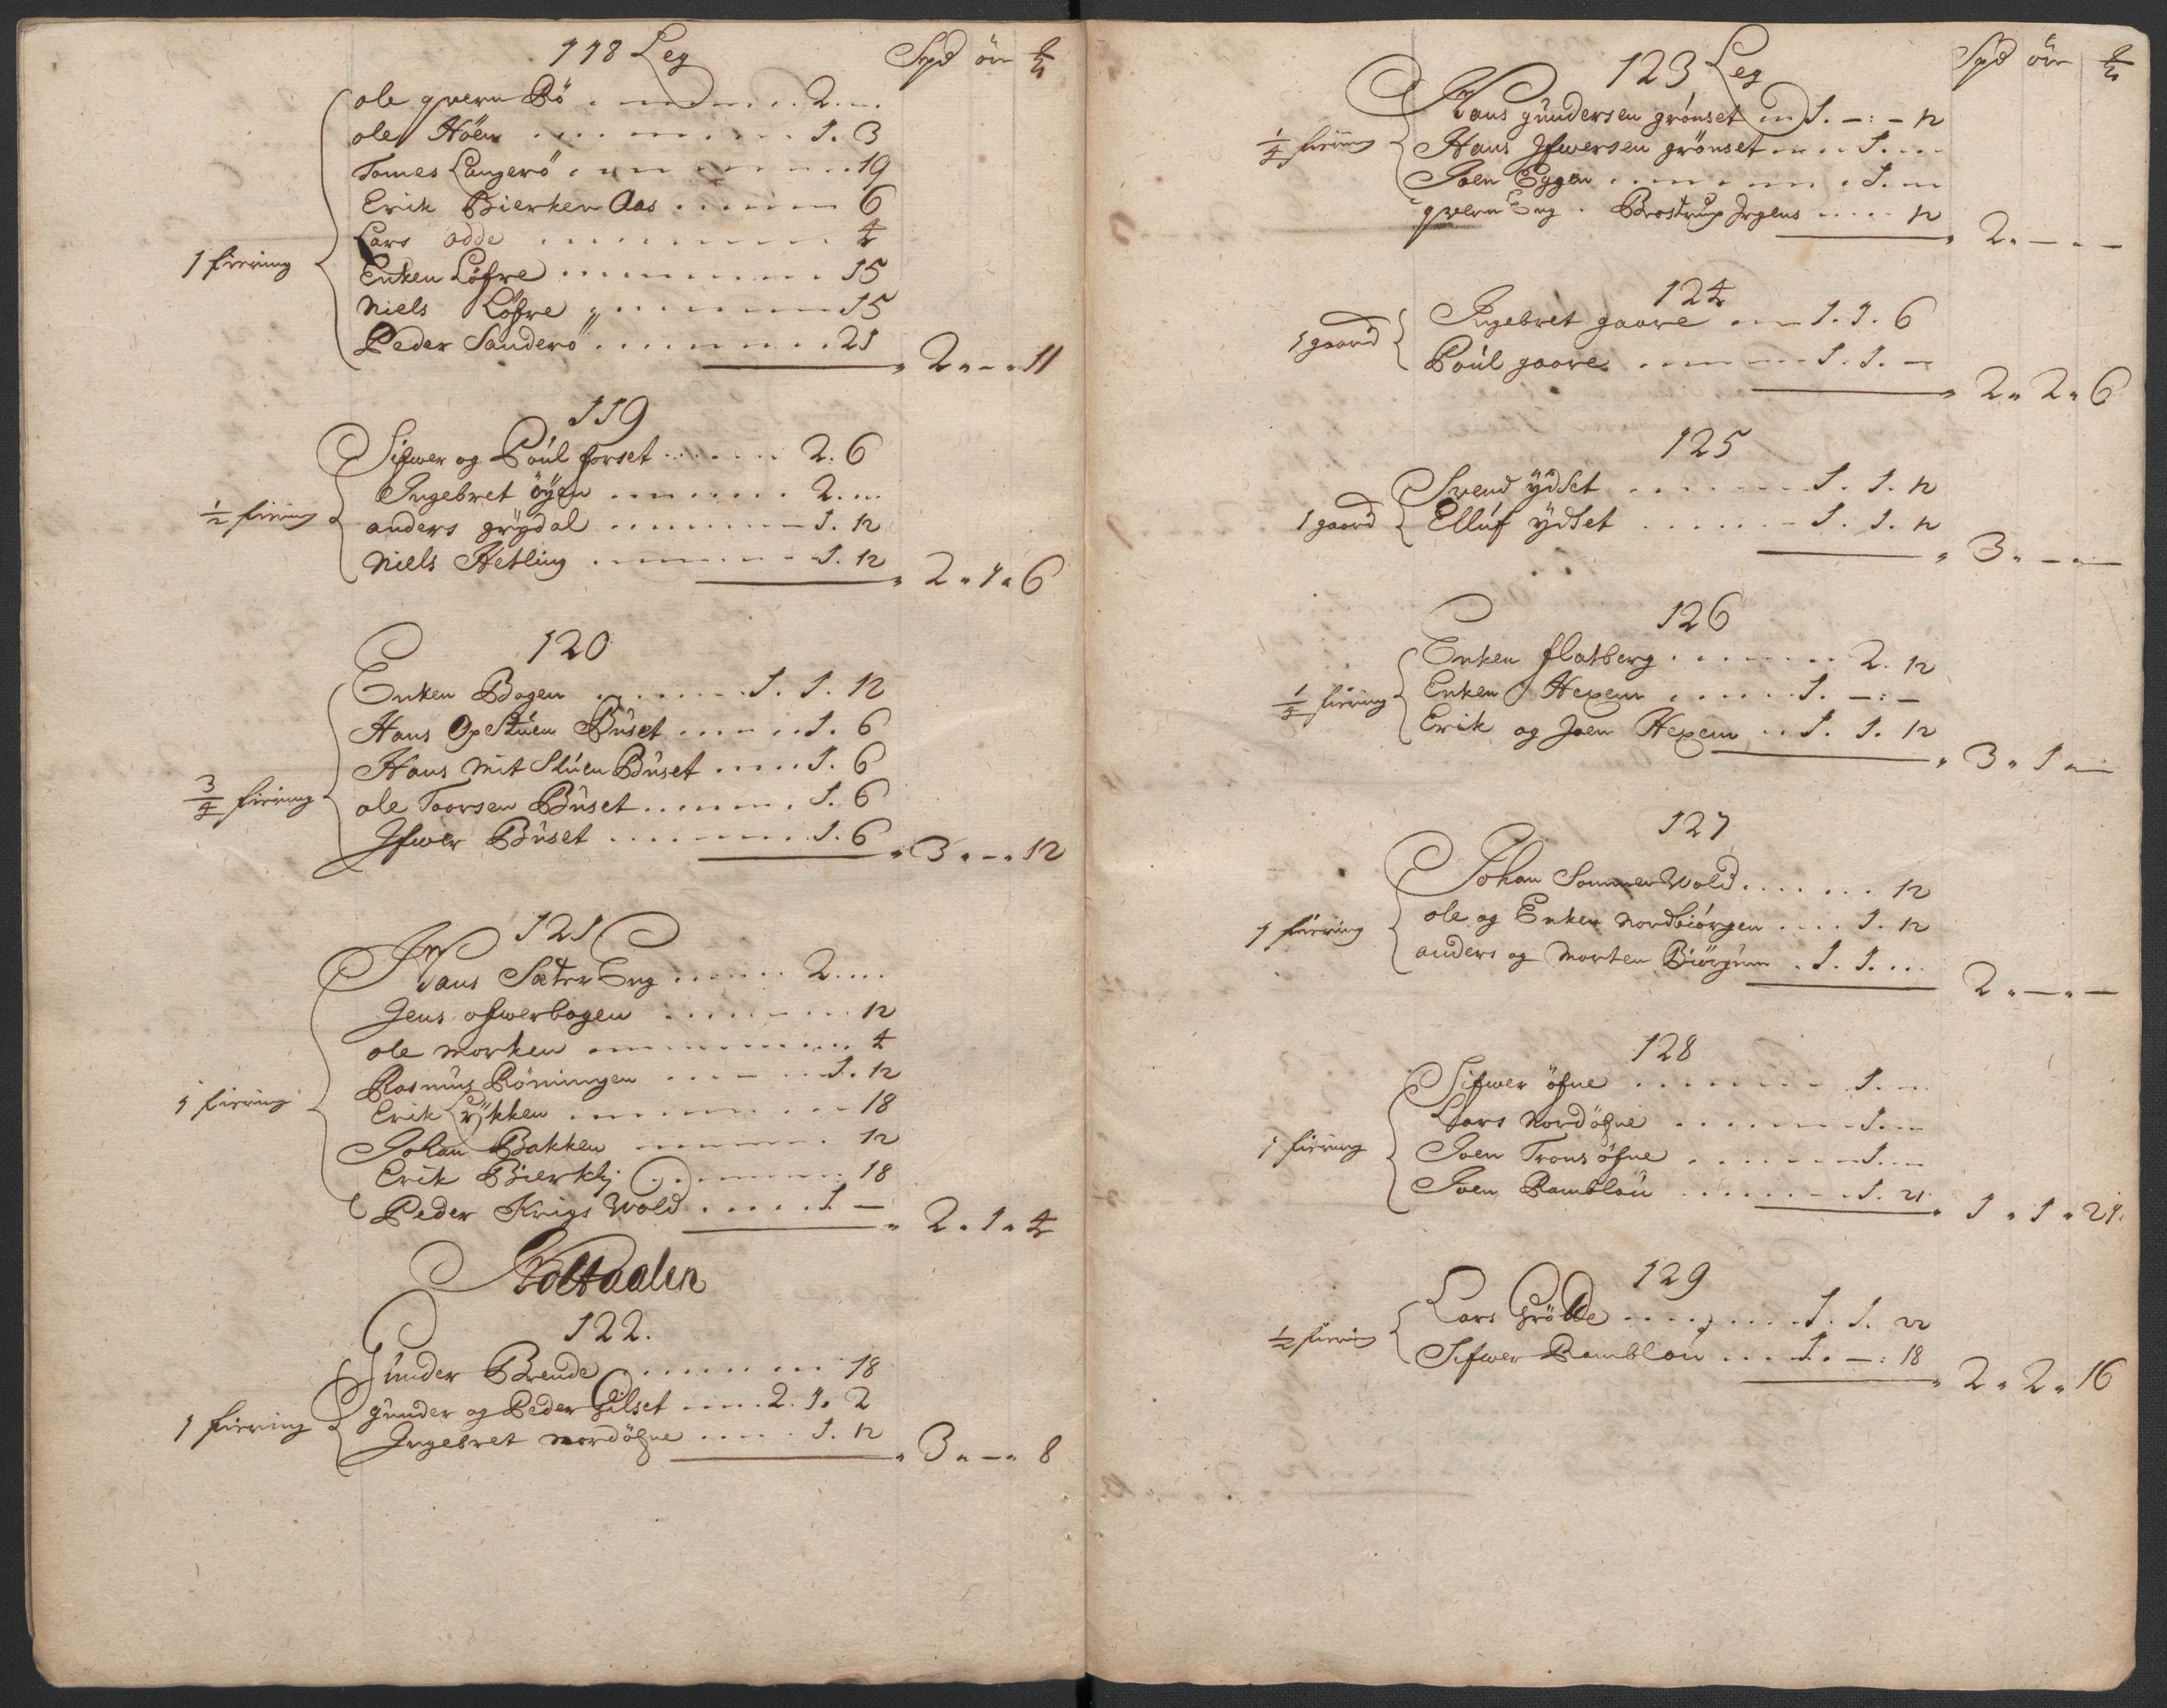 118 Leg Spd ör
ole qvern Bö . . . . 2. —
ole Höen . . . . 1. 3
Tomes Langerö . . . . 19
Erik Bierken Aas . . . . 6
Lars odde . . . . 4
1 fiering Enken Löfre . . . . 15
Niels Löfre . . . . 15
Peder Sanderö . . . . 21
2. — . 11
119
Sifwer og Poúl forset . . . . 2. 6
Ingebret öyen . . . . 2. —
1/2 fiering anders grÿdal . . . . 1. 12
Niels Hetling . . . . 1. 12
2. 1. 6
120
Enken Bogen . . . . 1. 1. 12
Hans OpStúen Búset . . . . 1. 6
Hans mit Stúen Búset . . . . 1. 6
3/4 fiering ole Toorsen Búset . . . . 1. 6
Ifwer Búset . . . . 1. 6
3. — . 12
121
Hans Sæter Eng . . . . 2. —
Jens ofwerbogen . . . . 12
ole morken . . . . 4
Rasmús Röningen . . . . 1. 12
1 fiering Erik Lÿkken . . . . 18
Johan Bakken . . . . 12
Erik Bierkli . . . . 18
Peder Krigs Wold . . . . 1 —
2. 1. 4
Holtaalen
122.
Gúnder Brende . . . . 18
1 fiering gúnder og Peder Gilset . . . . 2. 1. 2
Ingebret nordöfne . . . . 1. 12
3. — . 8
123 Leg Spd ör
Hans gúndersen grónset . . . . 1. — : — 12
1/4 fiering Hans Ifwersen grönset . . . . 1. —
Joen Eggen . . . . 1. —
qvern Eng . Brostrup Jrgens . . . . 12
2. — . —
124
Ingebret gaare . . . . 1. 1. 6
1 gaard Poúl gaare . . . . 1. 1. —
2. 2. 6
125
Svend ÿdset . . . . 1. 1. 12
1 gaard Ellúf ÿdset . . . . 1. 1. 12
3. — . —
126
Enken flatberg . . . . 2. 12
1/4 fiering Enken Hexem . . . . 1. — : —
Erik og Joen Hexem . . 1. 1. 12
3. 1. —
127
Johan SommerWold . . . . 12
1 fiering ole og Enken nordbiórgen . . . . 1. 12
anders og Morten Biörgúm . 1. 1. . .
2. — . —
128
Sifwer öfne . . . . 1. —
Lars Nordöfne . . . . 1. —
1 fiering Joen Trons öfne . . . . 1. —
Joen Ramblaú . . . . 1. 21
1. 1. 21.
129
Lars Grötte . . . . 1. 1. 22
1/2 fiering Sifwer Ramblaú . . . 1. — : 18
2. 2. 16